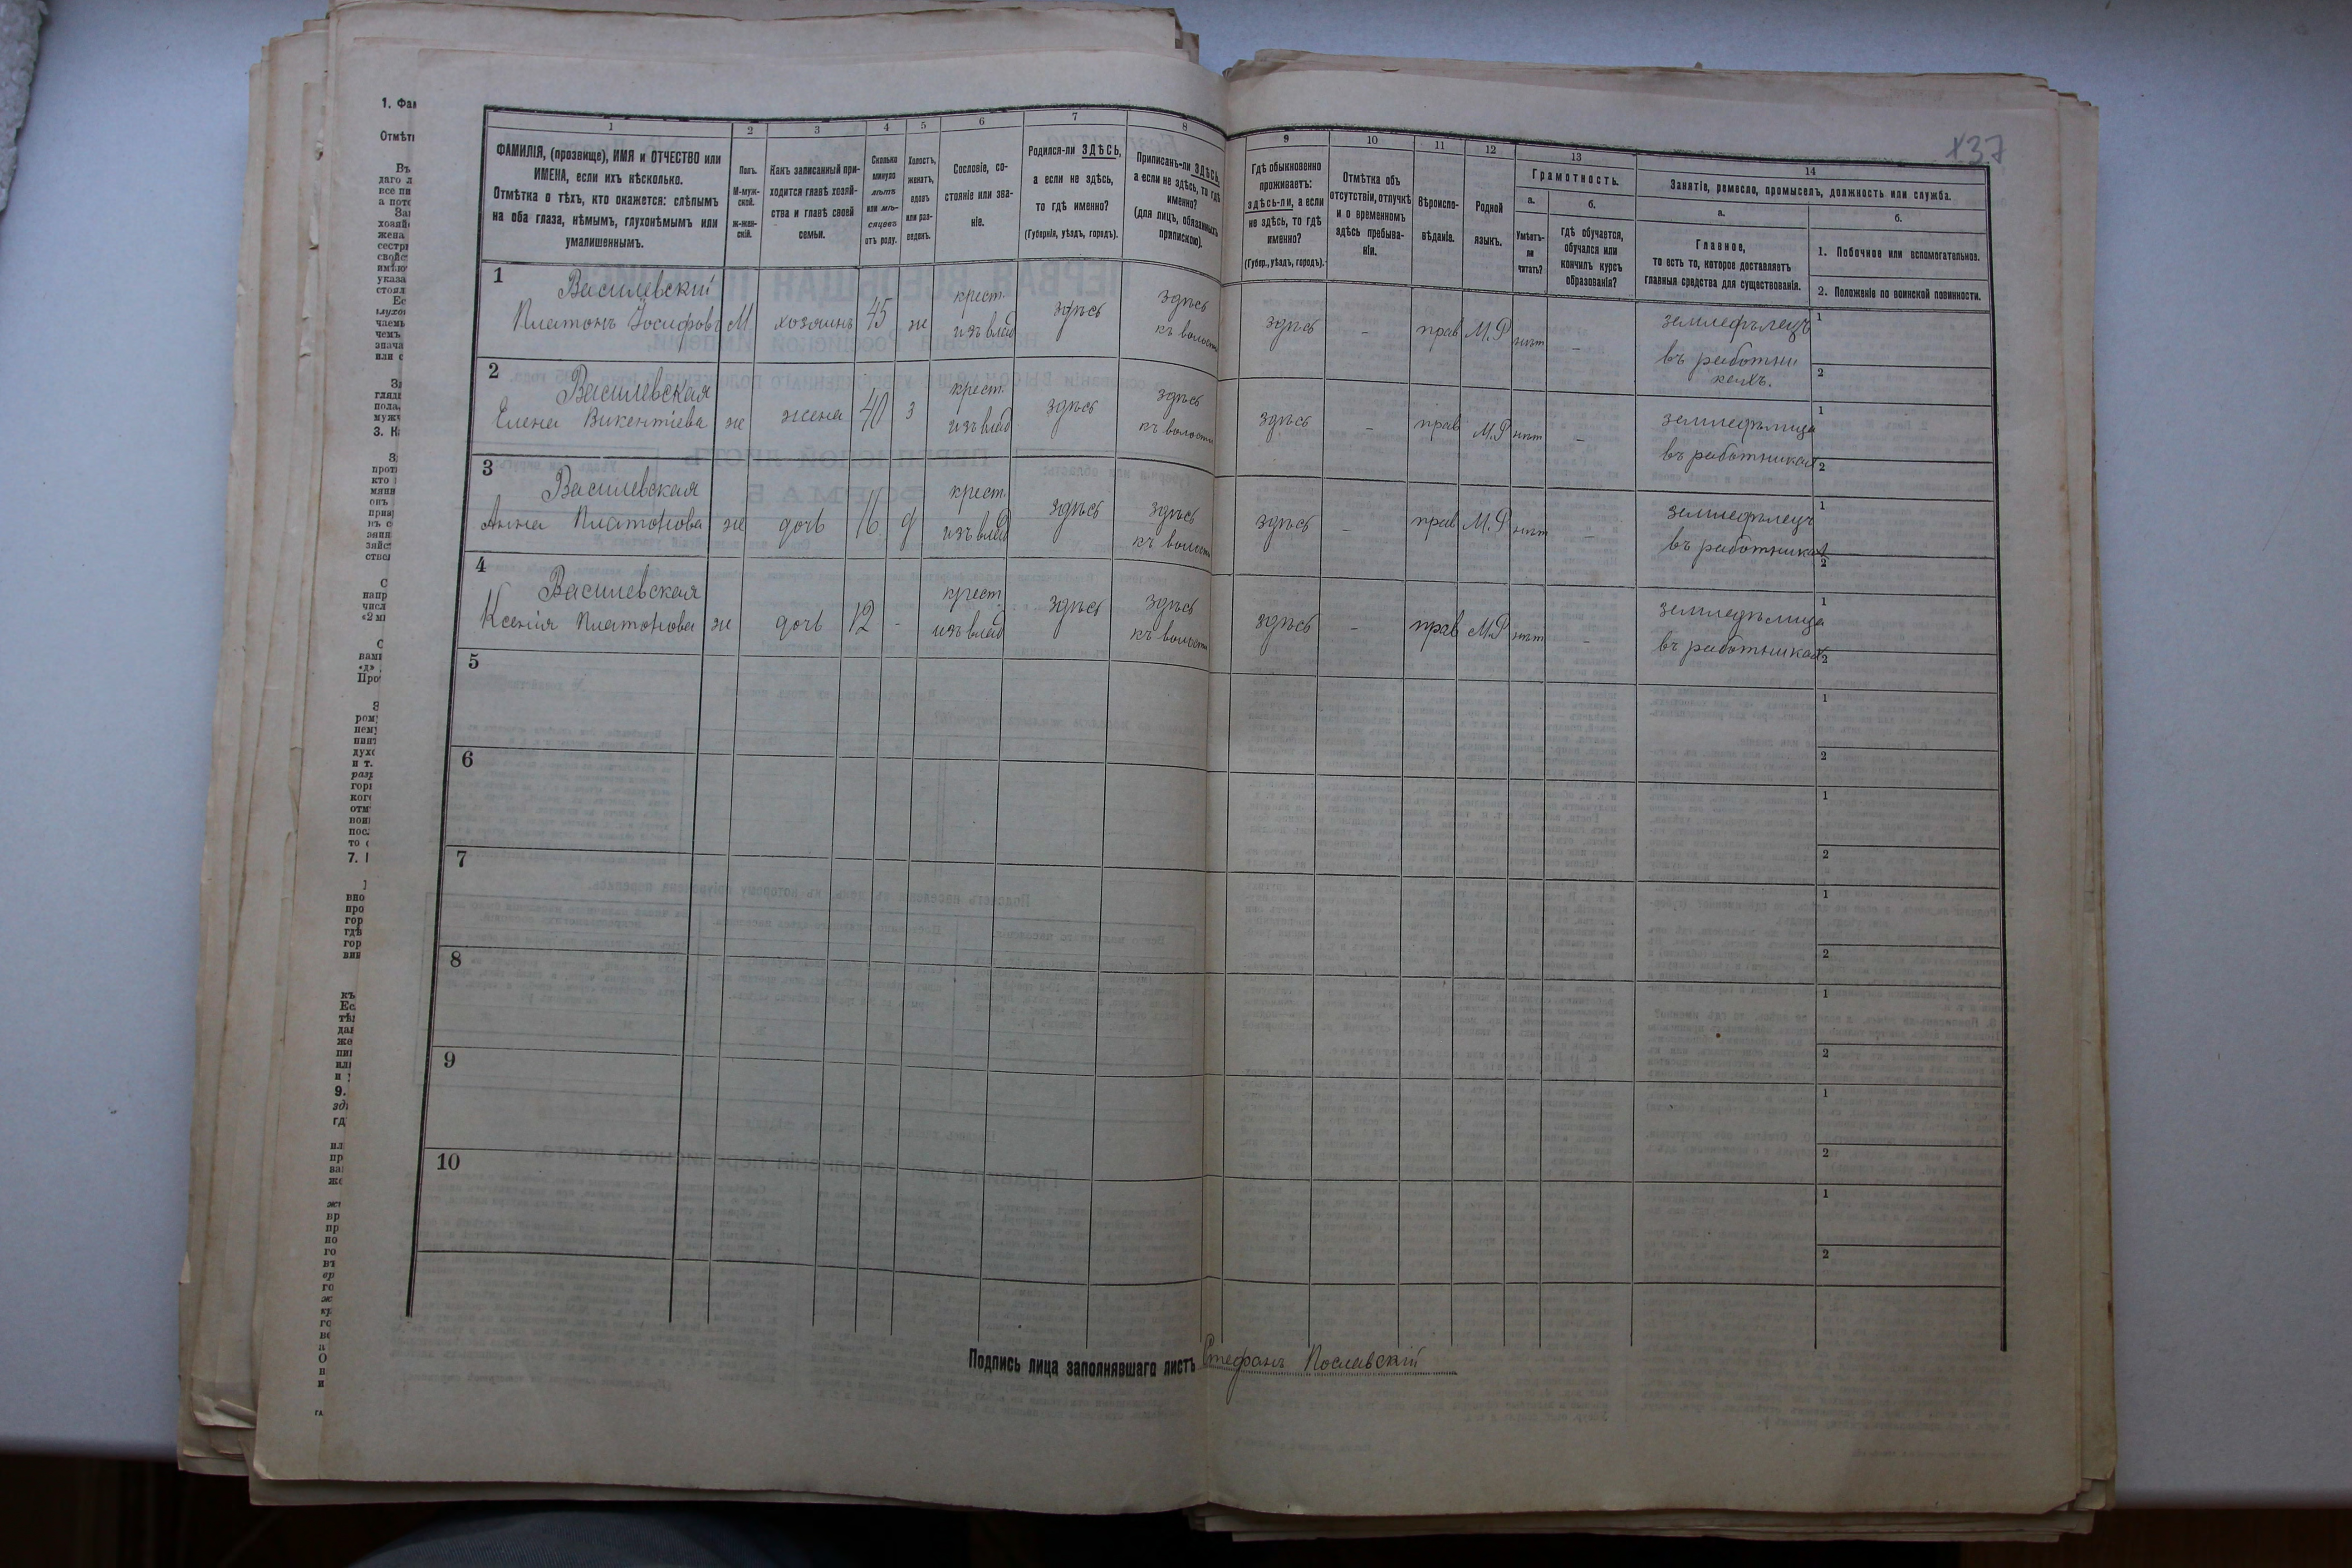 137
1
2
3
4
5
6
7
8
9
10
11
12
13
14
ФАМИЛІЯ, (прозвище), ИМЯ и ОТЧЕСТВО или
ИМЕНА, если ихъ нѣсколько.
Отмѣтка о тѣхъ, кто окажется: слѣпымъ
на оба глаза, нѣмымъ, глухонѣмымъ или
умалишеннымъ.
Полъ.
М-муж-
ской.
Ж-жен-
скій.
Какъ записанный при-
ходится главѣ хозяй-
ства и главѣ своей
семьи.
Сколько
минуло
лѣтъ
или мѣ-
сяцевъ
отъ роду.
Холостъ,
женатъ,
вдовъ
или раз-
веденъ.
Сословіе, со-
стояніе или зва-
ніе.
Родился-ли ЗДѢСЬ,
а если не здѣсь,
то гдѣ именно?
(Губернія, уѣздъ, городъ).
Приписанъ-ли ЗДѢСЬ,
а если не здѣсь, то гдѣ
именно?
(для лицъ, обязанныхъ
припискою).
Гдѣ обыкновенно
проживаетъ:
здѣсь-ли, а если
не здѣсь, то гдѣ
именно?
(Губер., уѣздъ, городъ).
Отмѣтка объ
отсутствіи, отлучкѣ
и о временномъ
здѣсь пребыва-
ніи.
Вѣроиспо-
вѣданіе.
Родной
языкъ.
Грамотность.
а.
Умѣетъ-
ли
читать?
б.
гдѣ обучается,
обучался или
кончилъ курсъ
образованія?
Занятіе, ремесло, промыселъ, должность или служба.
а.
Главное,
то есть то, которое доставляетъ
главныя средства для существованія.
б.
1. Побочное или вспомогательное.
2. Положеніе по воинской повинности.
1 Василевскій крест. здѣсь здѣсь здѣсь - прав М.Р нѣт - земледѣлецъ 1
Платонъ Іосифовъ М хозяинъ 45 ж изъ влад къ волости въ работни
кахъ. 2
2 Василевская крест. здѣсь здѣсь здѣсь - прав М.Р нѣт - земледѣлица 1
Елена Викентіева ж жена 40 з изъ влад къ волости въ работниках 2
3 Василевская крест. здѣсь здѣсь здѣсь - прав М.Р нѣт - земледѣлецъ 1
Анна Платонова ж дочь 16 д изъ влад къ волости въ работниках 2
4 Василевская крест. здѣсь здѣсь здѣсь - прав М.Р нѣт - земледѣлица 1
Ксенія Платонова ж дочь 12 - изъ влад къ волости въ работниках 2
5 1
2
6 1
2
7 1
2
8 1
2
9 1
2
10 1
2
Подпись лица заполнявшаго листъ Стефанъ Пославскій